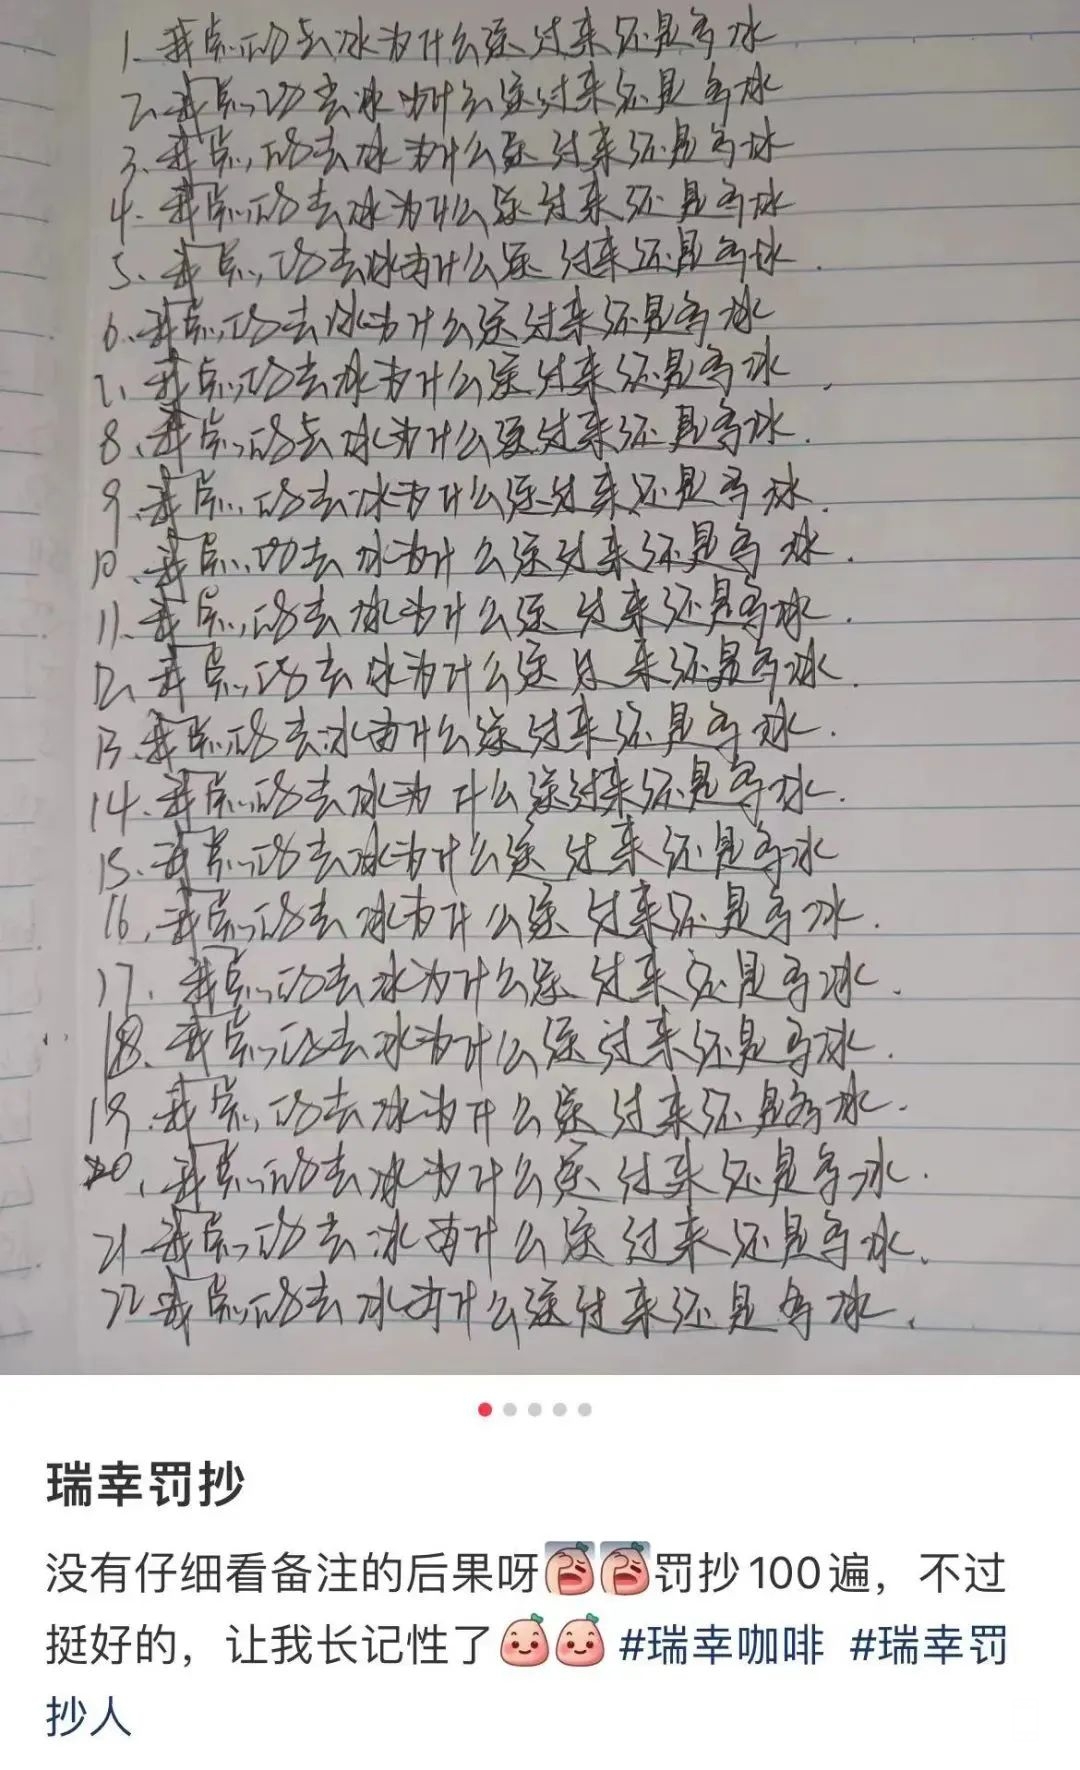 1. 我点的去冰为什么送过来还是多冰
2. 我点的去冰为什么送过来还是多冰
3. 我点的去冰为什么送过来还是多冰
4. 我点的去冰为什么送过来还是多冰
5. 我点的去冰为什么送过来还是多冰.
6. 我点的去冰为什么送过来还是多冰
7. 我点的去冰为什么送过来还是多冰.
8. 我点的去冰为什么送过来还是多冰.
9. 我点的去冰为什么送过来还是多冰.
10. 我点的去冰为什么送过来还是多冰.
11. 我点的去冰为什么送过来还是多冰.
12. 我点的去冰为什么送过来还是多冰.
13. 我点的去冰为什么送过来还是多冰.
14. 我点的去冰为什么送过来还是多冰.
15. 我点的去冰为什么送过来还是多冰
16. 我点的去冰为什么送过来还是多冰.
17. 我点的去冰为什么送过来还是多冰.
18. 我点的去冰为什么送过来还是多冰.
19. 我点的去冰为什么送过来还是多冰.
20. 我点的去冰为什么送过来还是多冰.
21 我点的去冰为什么送过来还是多冰.
22 我点的去冰为什么送过来还是多冰.
瑞幸罚抄
没有仔细看备注的后果呀罚抄100遍，不过
挺好的，让我长记性了 #瑞幸咖啡 #瑞幸罚
抄人